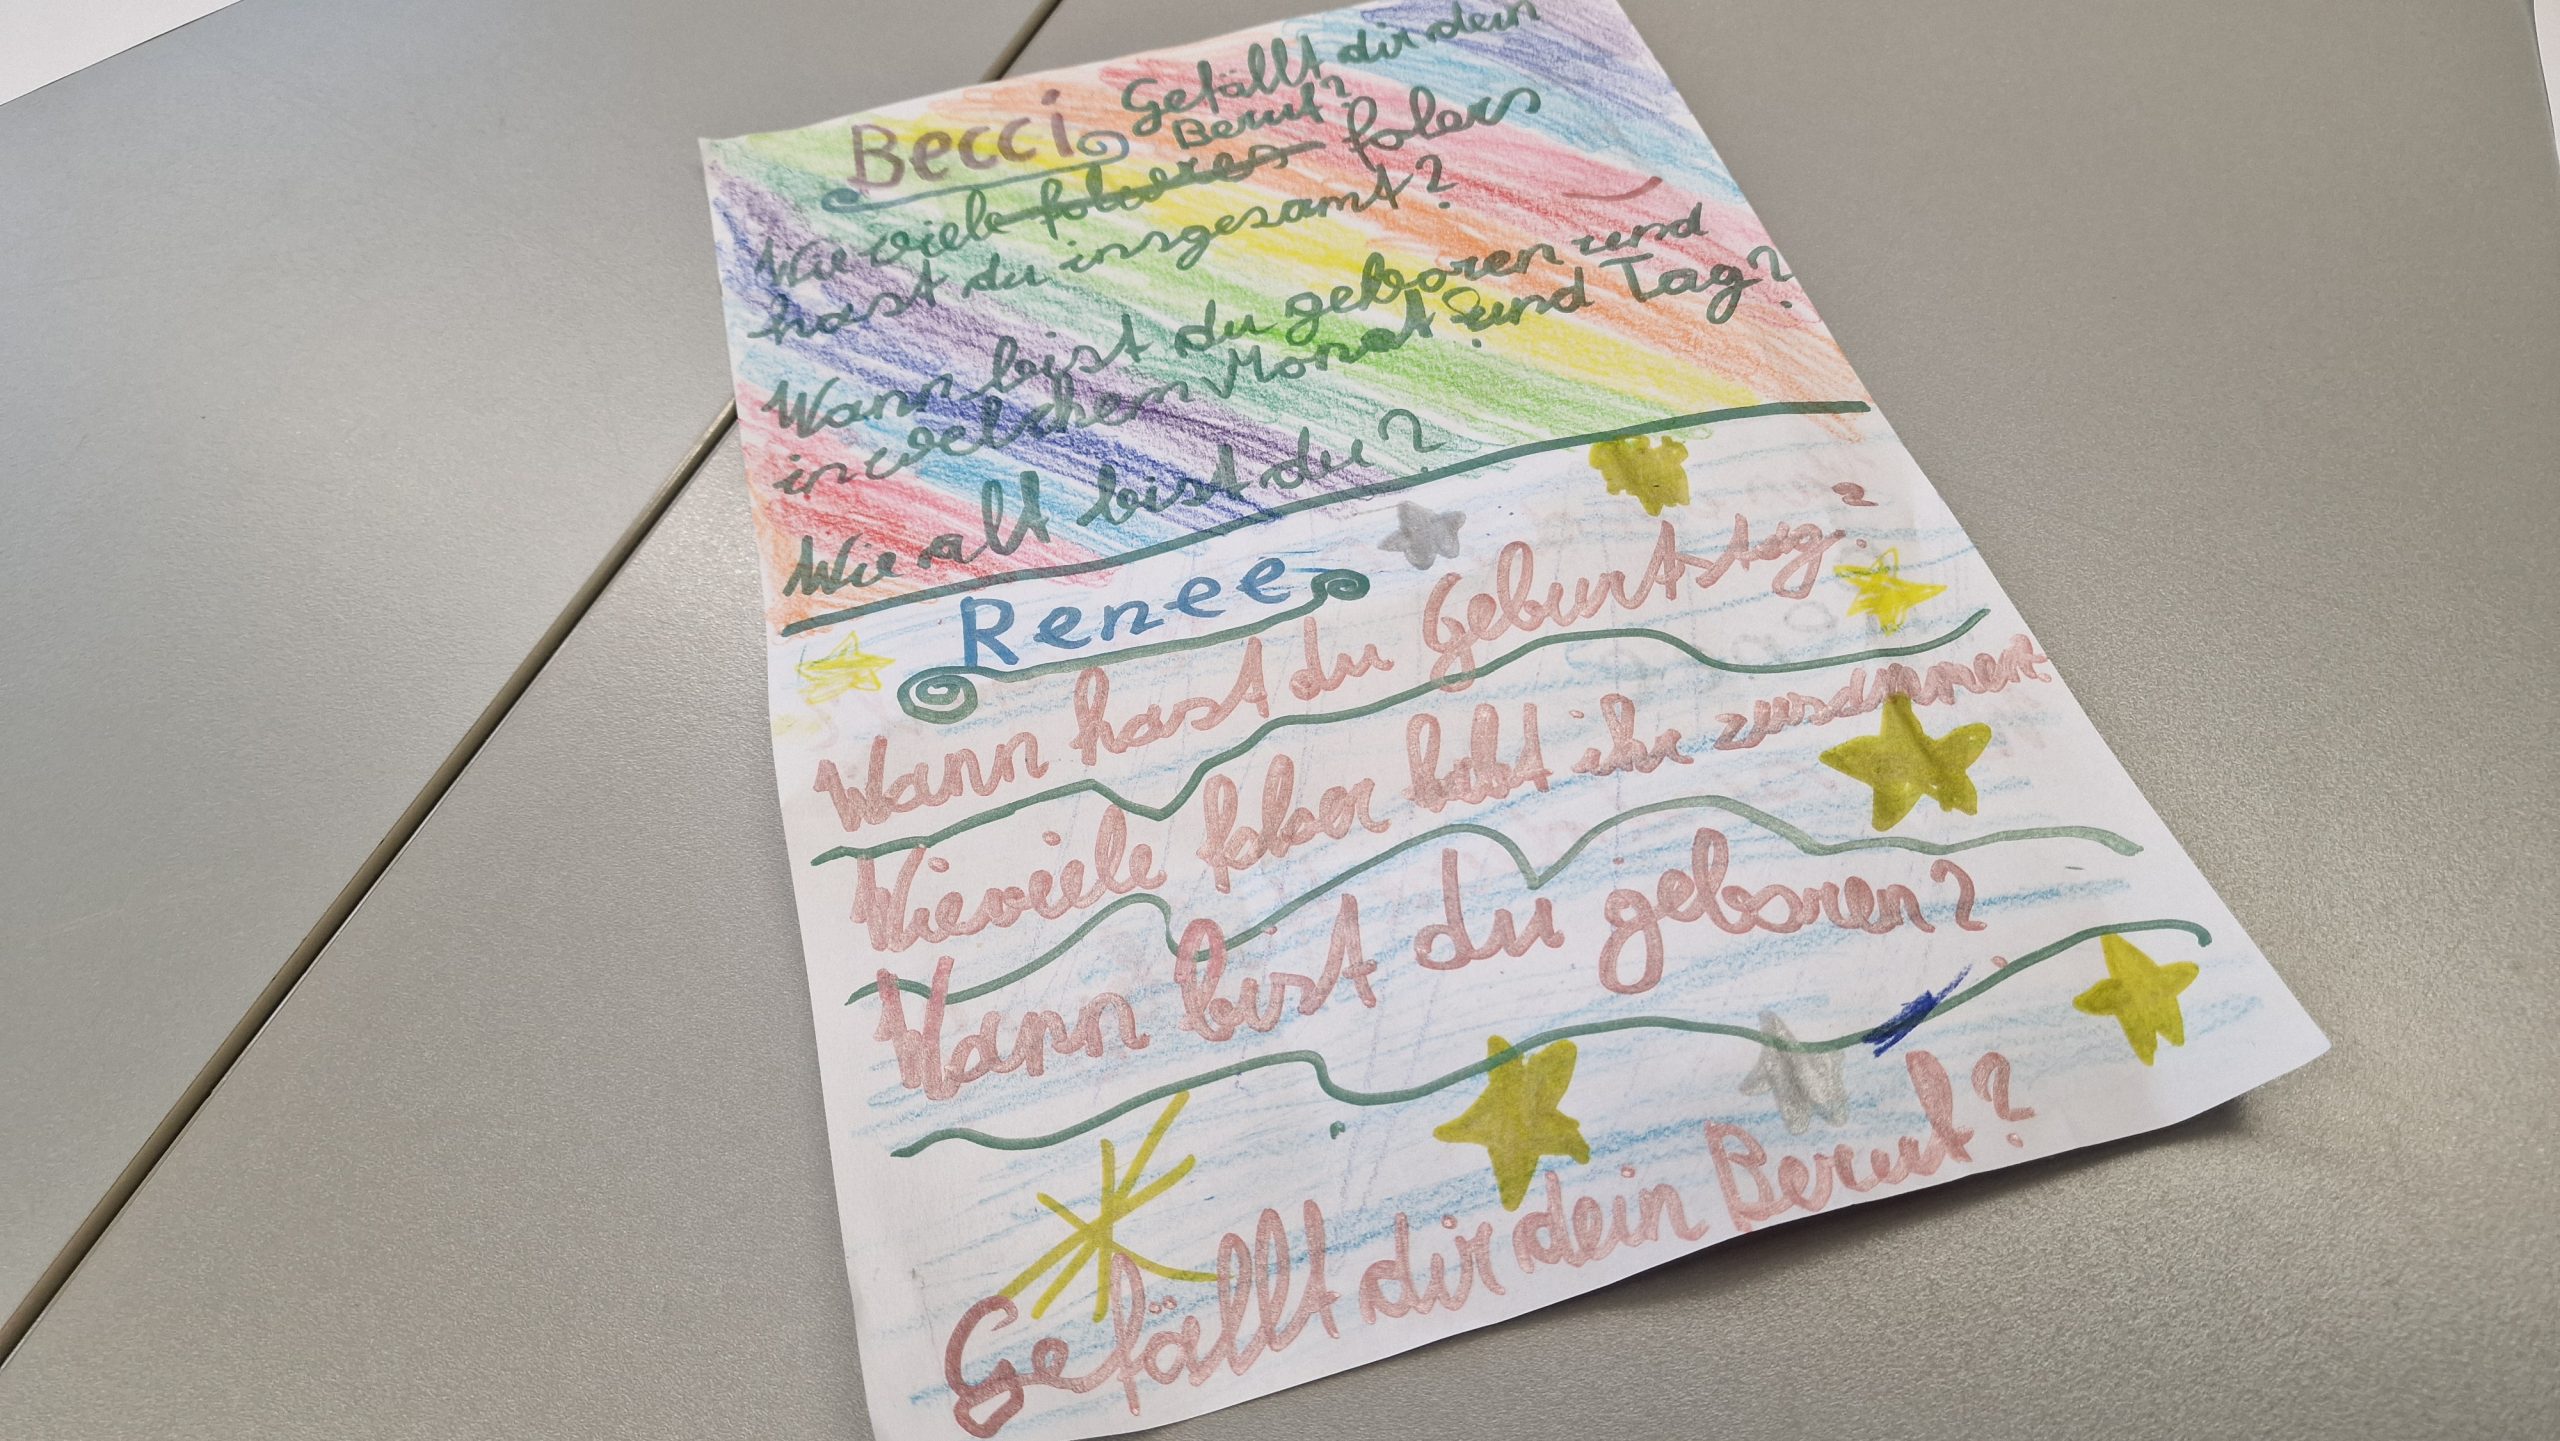 Becci
Gefällt dir dein
Beruf?
Wie viele folwres folers
hast du insgesamt?
Wann bist du geboren und
in welchem Monat und Tag?
Wie alt bist du?
Renee
Wann hast du Geburtstag?
Wieviele folwer habt ihr zusammen?
Wann bist du geboren?
Gefällt dir dein Beruf?